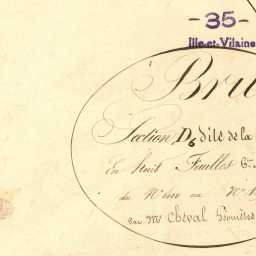 - 35 -
Ille-et-Vilaine
Bru
Section D6 dite de la
En huit Feuilles
du N° au N°
Par Mr Cheval Géomètre